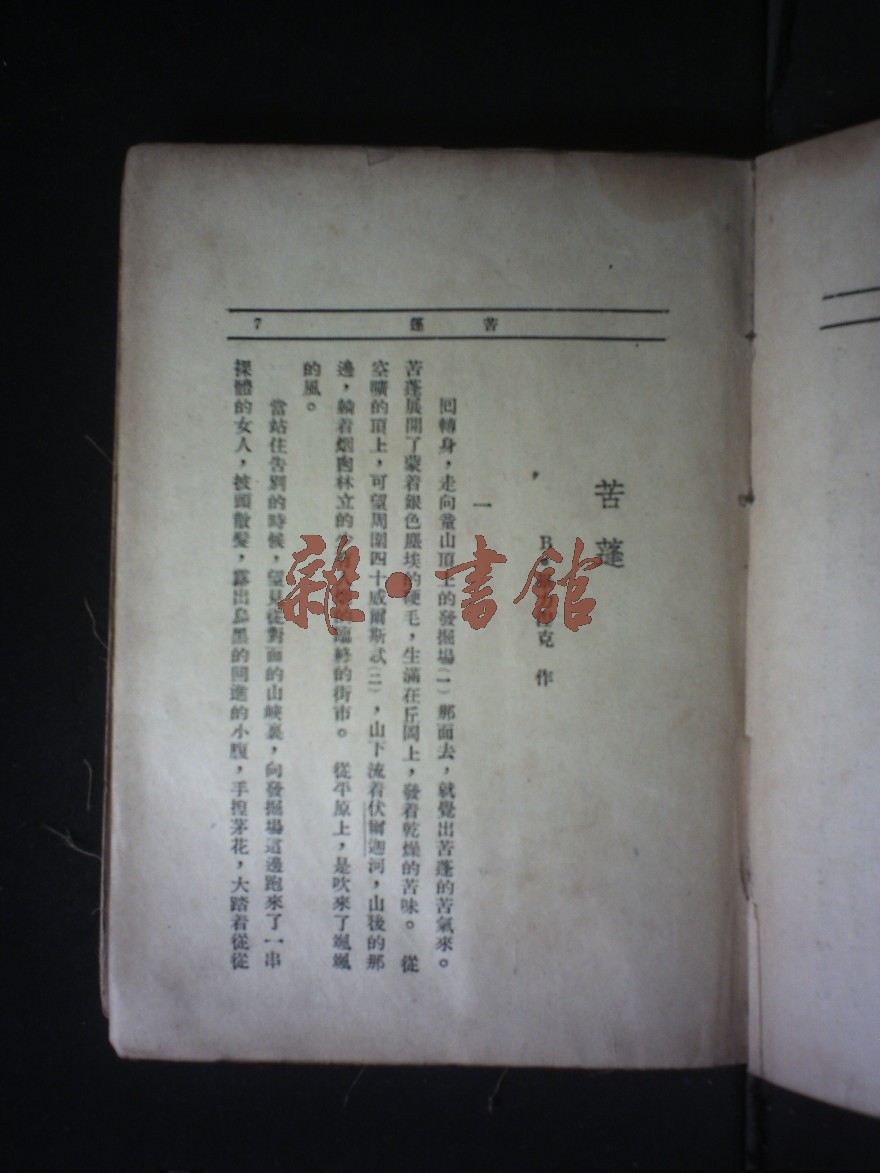 苦蓬
7
苦蓬
B 克 作
一
回轉身，走向童山頂上的發掘場(一)那面去，就覺出苦蓬的苦氣來。
苦蓬展開了蒙着銀色塵埃的硬毛，生滿在丘岡上，發着乾燥的苦味。 從
空曠的頂上，可望周圍四十威爾斯忒(二)，山下流着伏爾迦河，山後的那
邊，躺着烟囪林立的 的臨終的街市。 從平原上，是吹來了颯颯
的風。
當站住告別的時候，望見從對面的山峽裏，向發掘場這邊跑來了一串
裸體的女人，披頭散髮，露出烏黑的凹進的小腹，手捏茅花，大踏着從從
雜·書館